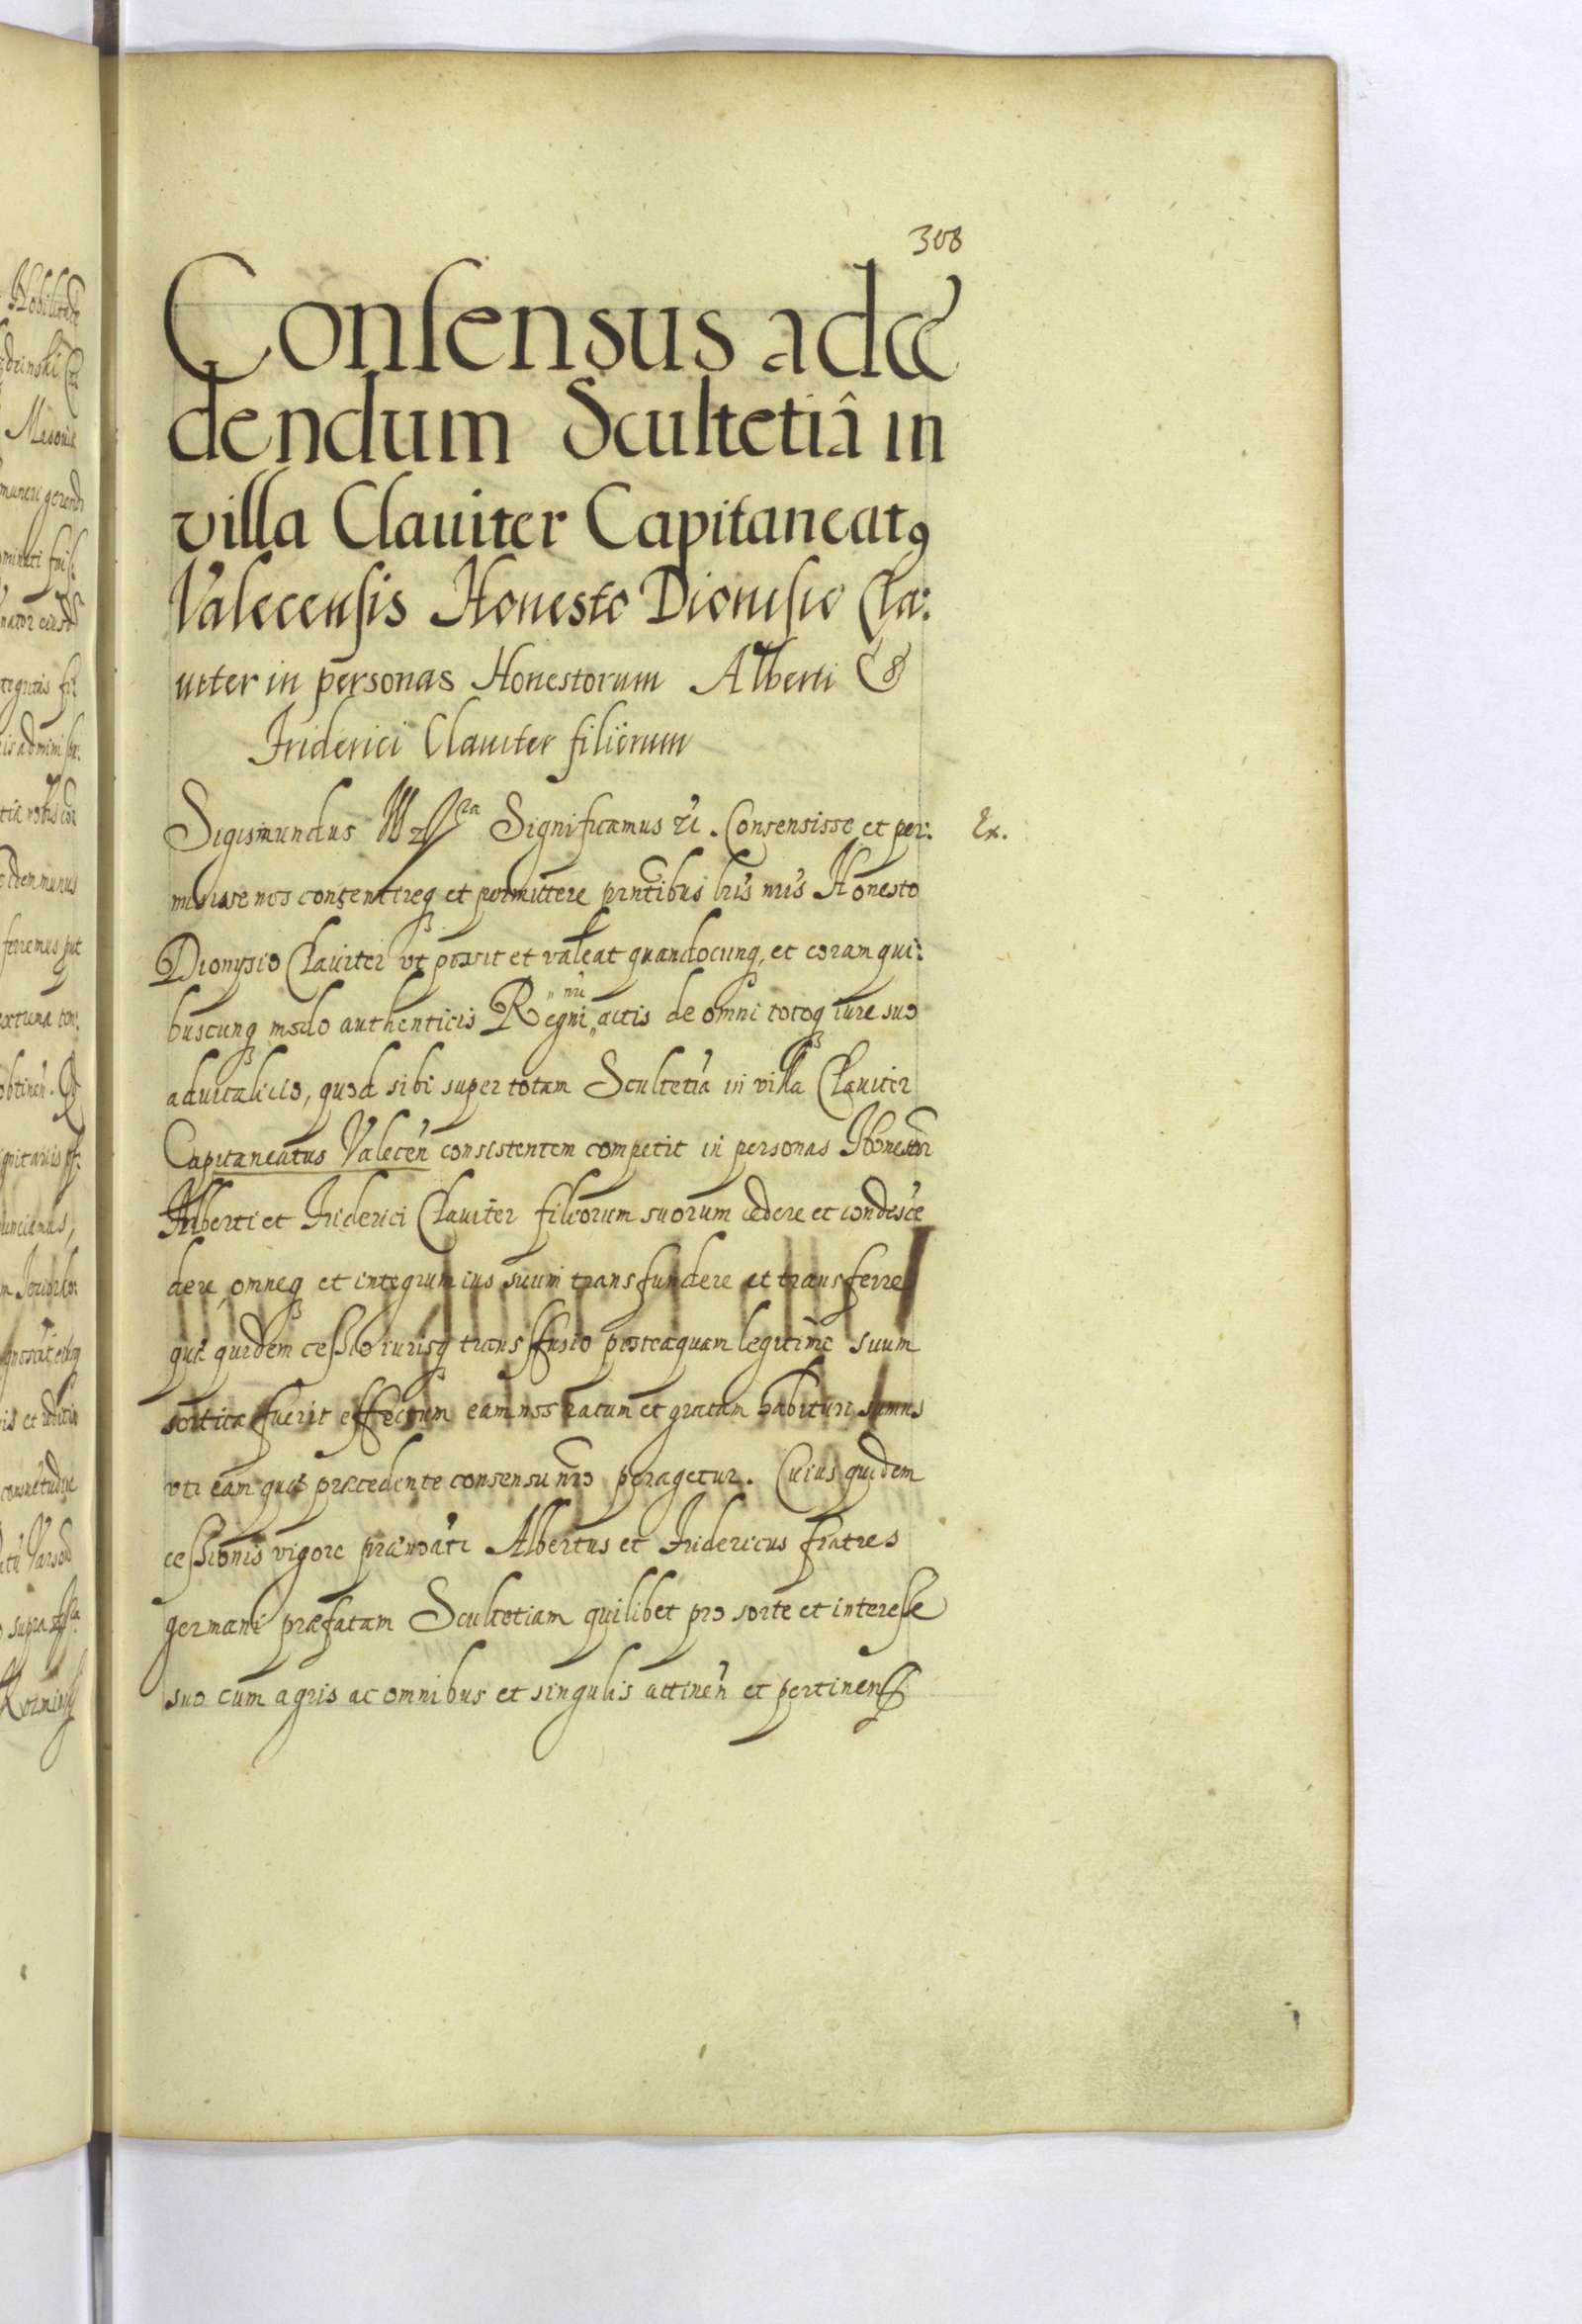 308
Consensus ad ce
dendum Scultetiâ in
villa Clauiter Capitaneatꝰ
Valecensis Honesto Dionisio Cla:
uiter in personas Honestorum Alberti &
Friderici Clauiter filiorum
Sigismundus Significamus &. Consensisse et per: Ex.
misisse nos consentireq et permittere pñtibus lr̃is nr̃is Honesto
Dionysio Clauiter vt possit et valeat quandocunq, et coram qui:
buscunq modo authenticis Regni „nri„ actis de omni totoq iure suo
aduitalicio, quod sibi super totam Scultetiã in villa Clauiter
Capitaneatus Valeceñ consistentem competit in personas Honestor
Alberti et Friderici Clauiter filiorum suorum cedere et condesce
dere, omneq et integrum ius suum transfundere et transferre
quæ quidem cessio iurisq transffusio posteaquam legitimè suum
sortita fuerit effectum eam nos ratam et gratam habituri sumus
vti eam quæ præcedente consensu nr̃o peragetur. Cuius quidem
cessionis vigore prænoãti Albertus et Fridericus fratres
germani præfatam Scultetiam quilibet pro sorte et interesse
suo cum agris ac omnibus et singulis attineñ et pertinen